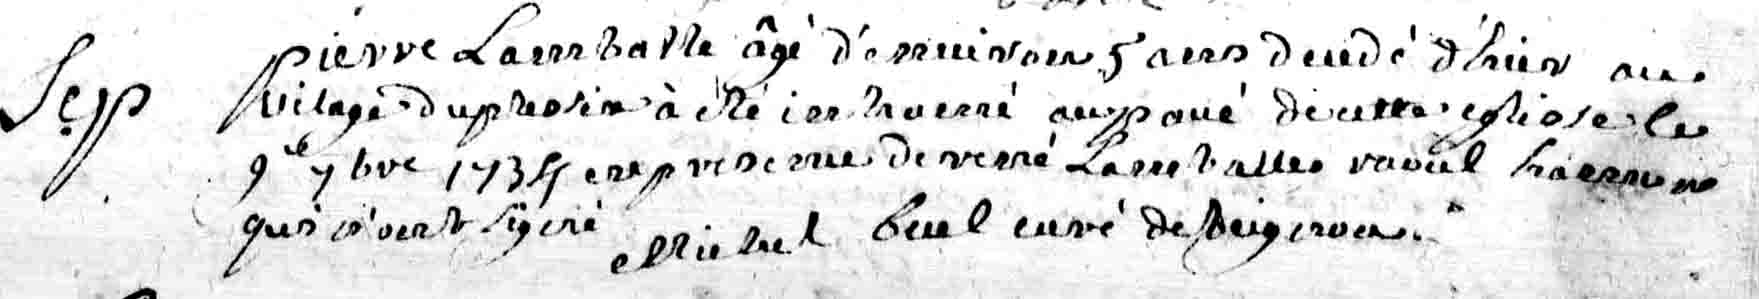 Sep pierre Lamballe âgé d'environ 5 ans decedé d'hier au
vilage du plessix à été inhumé au pavé de cette eglise le
9e 7bre 1734 en presence de rené Lamballe raoul hamon
qui n'ont signé Michel Buel curé de Beignon.